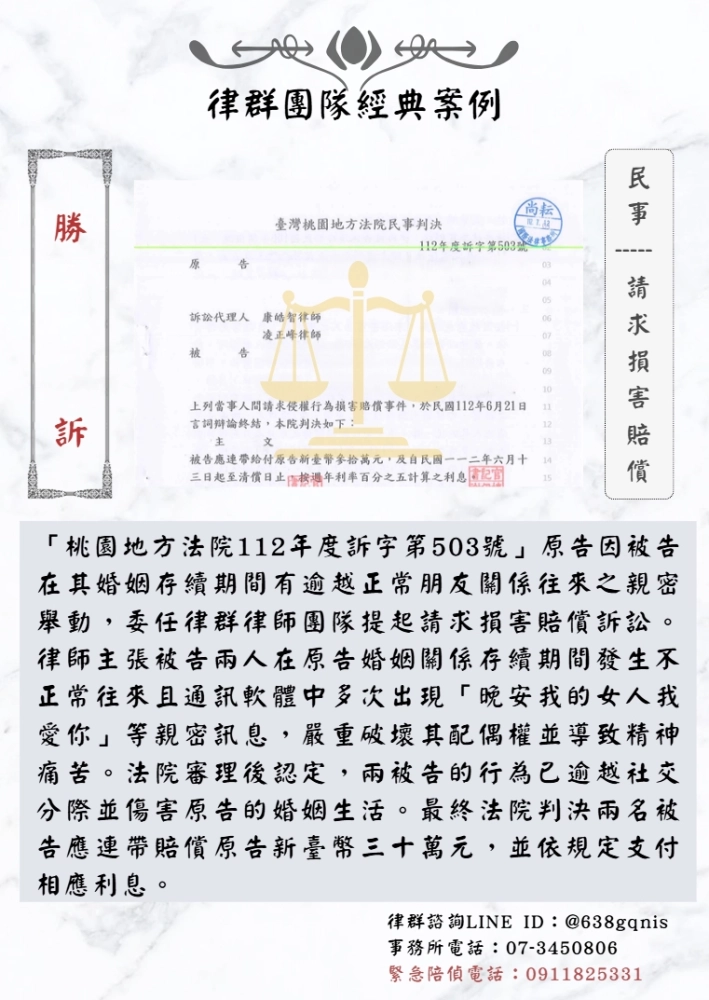 律群團隊經典案例
勝訴
民事-----請求損害賠償
尚耘
臺灣桃園地方法院民事判決
112年度訴字第503號
原 告
訴訟代理人 康皓智律師
凌正峰律師
被 告
上列當事人間請求侵權行為損害賠償事件,於民國112年6月21日
言詞辯論終結,本院判決如下:
主 文
被告應連帶給付原告新臺幣參拾萬元,及自民國一一二年六月十
三日起至清償日止,按週年利率百分之五計算之利息
03
04
05
06
07
08
09
10
11
12
13
14
15
「桃園地方法院112年度訴字第503號」原告因被告
在其婚姻存續期間有逾越正常朋友關係往來之親密
舉動,委任律群律師團隊提起請求損害賠償訴訟。
律師主張被告兩人在原告婚姻關係存續期間發生不
正常往來且通訊軟體中多次出現「晚安我的女人我
愛你」等親密訊息,嚴重破壞其配偶權並導致精神
痛苦。法院審理後認定,兩被告的行為已逾越社交
分際並傷害原告的婚姻生活。最終法院判決兩名被
告應連帶賠償原告新臺幣三十萬元,並依規定支付
相應利息。
律群諮詢LINE ID:@638gqnis
事務所電話:07-3450806
緊急陪偵電話:0911825331